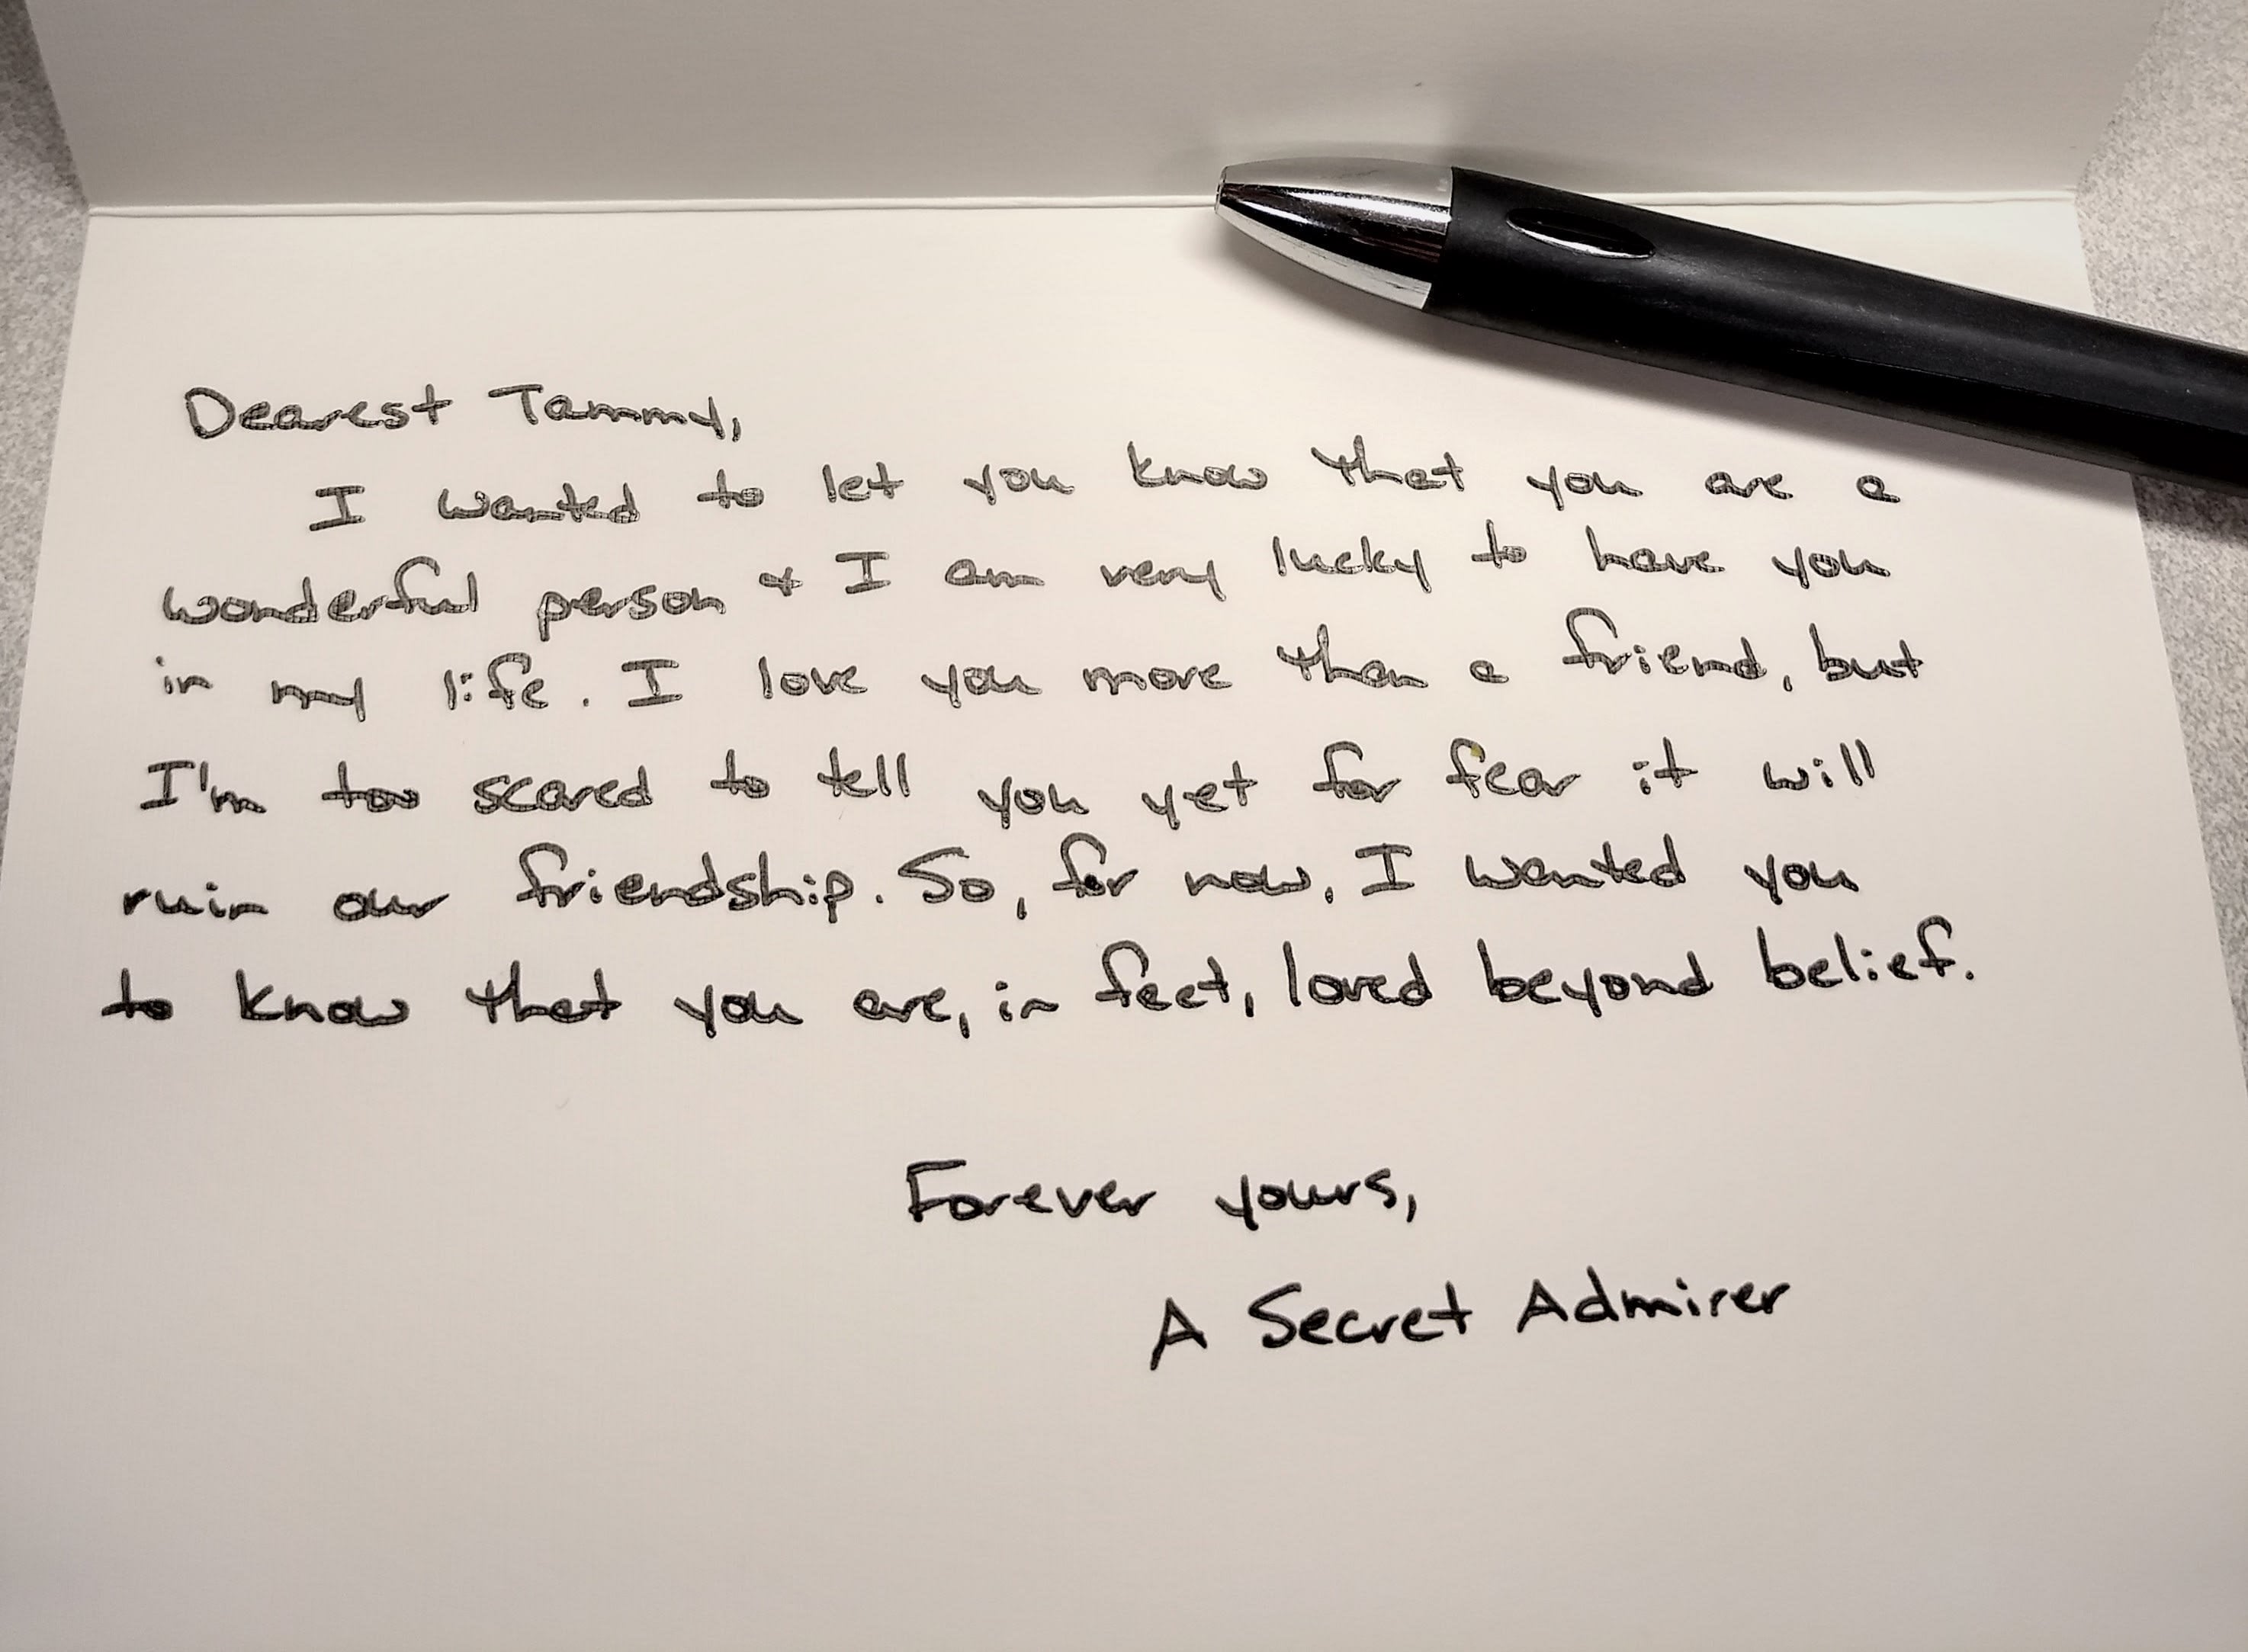 Dearest Tammy,
I wanted to let you know that you are a
wonderful person & I am very lucky to have you
in my life. I love you more than a friend, but
I'm too scared to tell you yet for fear it will
ruin our friendship. So, for now, I wanted you
to know that you are, in fact, loved beyond belief.
Forever yours,
A Secret Admirer